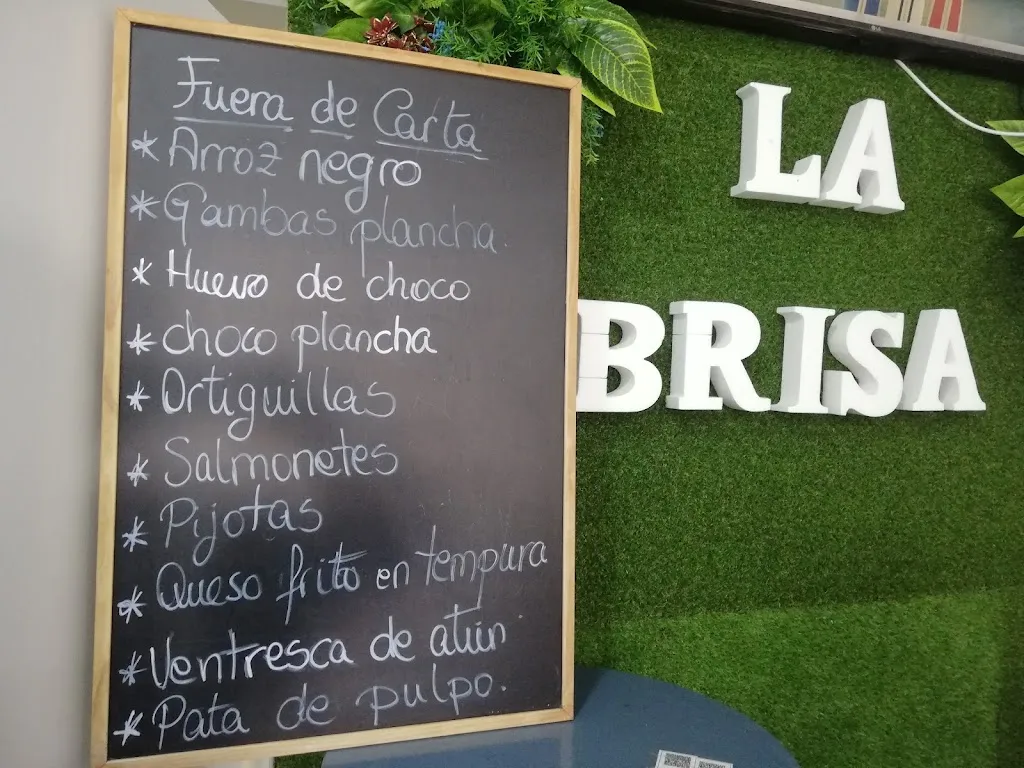 Fuera de Carta
* Arroz negro
* Gambas plancha.
* Huevo de choco
* choco plancha
* Ortiguillas
* Salmonetes
* Pijotas
* Queso frito en tempura
* Ventresca de atún
* Pata de pulpo.
LA
BRISA